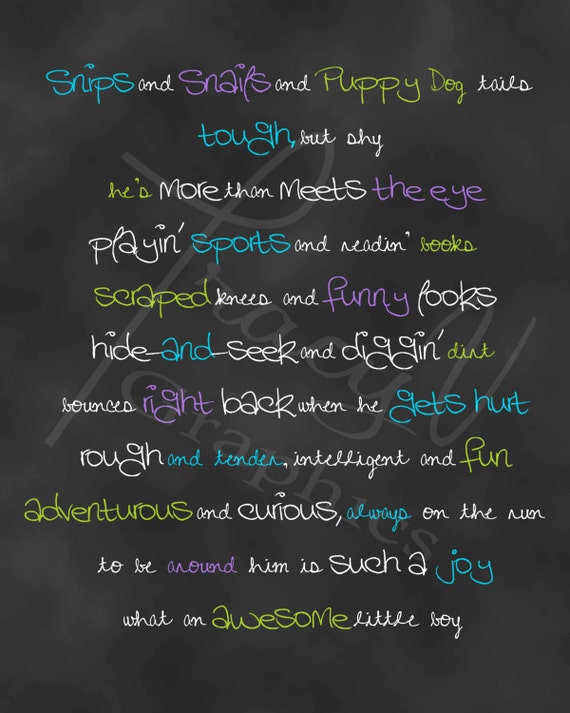 Snips and Snails and Puppy Dog tails
tough, but shy
he's More than Meets the eye
playin' sports and readin' books
scraped knees and funny looks
hide-and-seek and diggin' dirt
bounces right back when he gets hurt
rough and tender, intelligent and fun
adventurous and curious, always on the run
to be around him is such a joy
what an awesome little boy
TracyV
Graphics